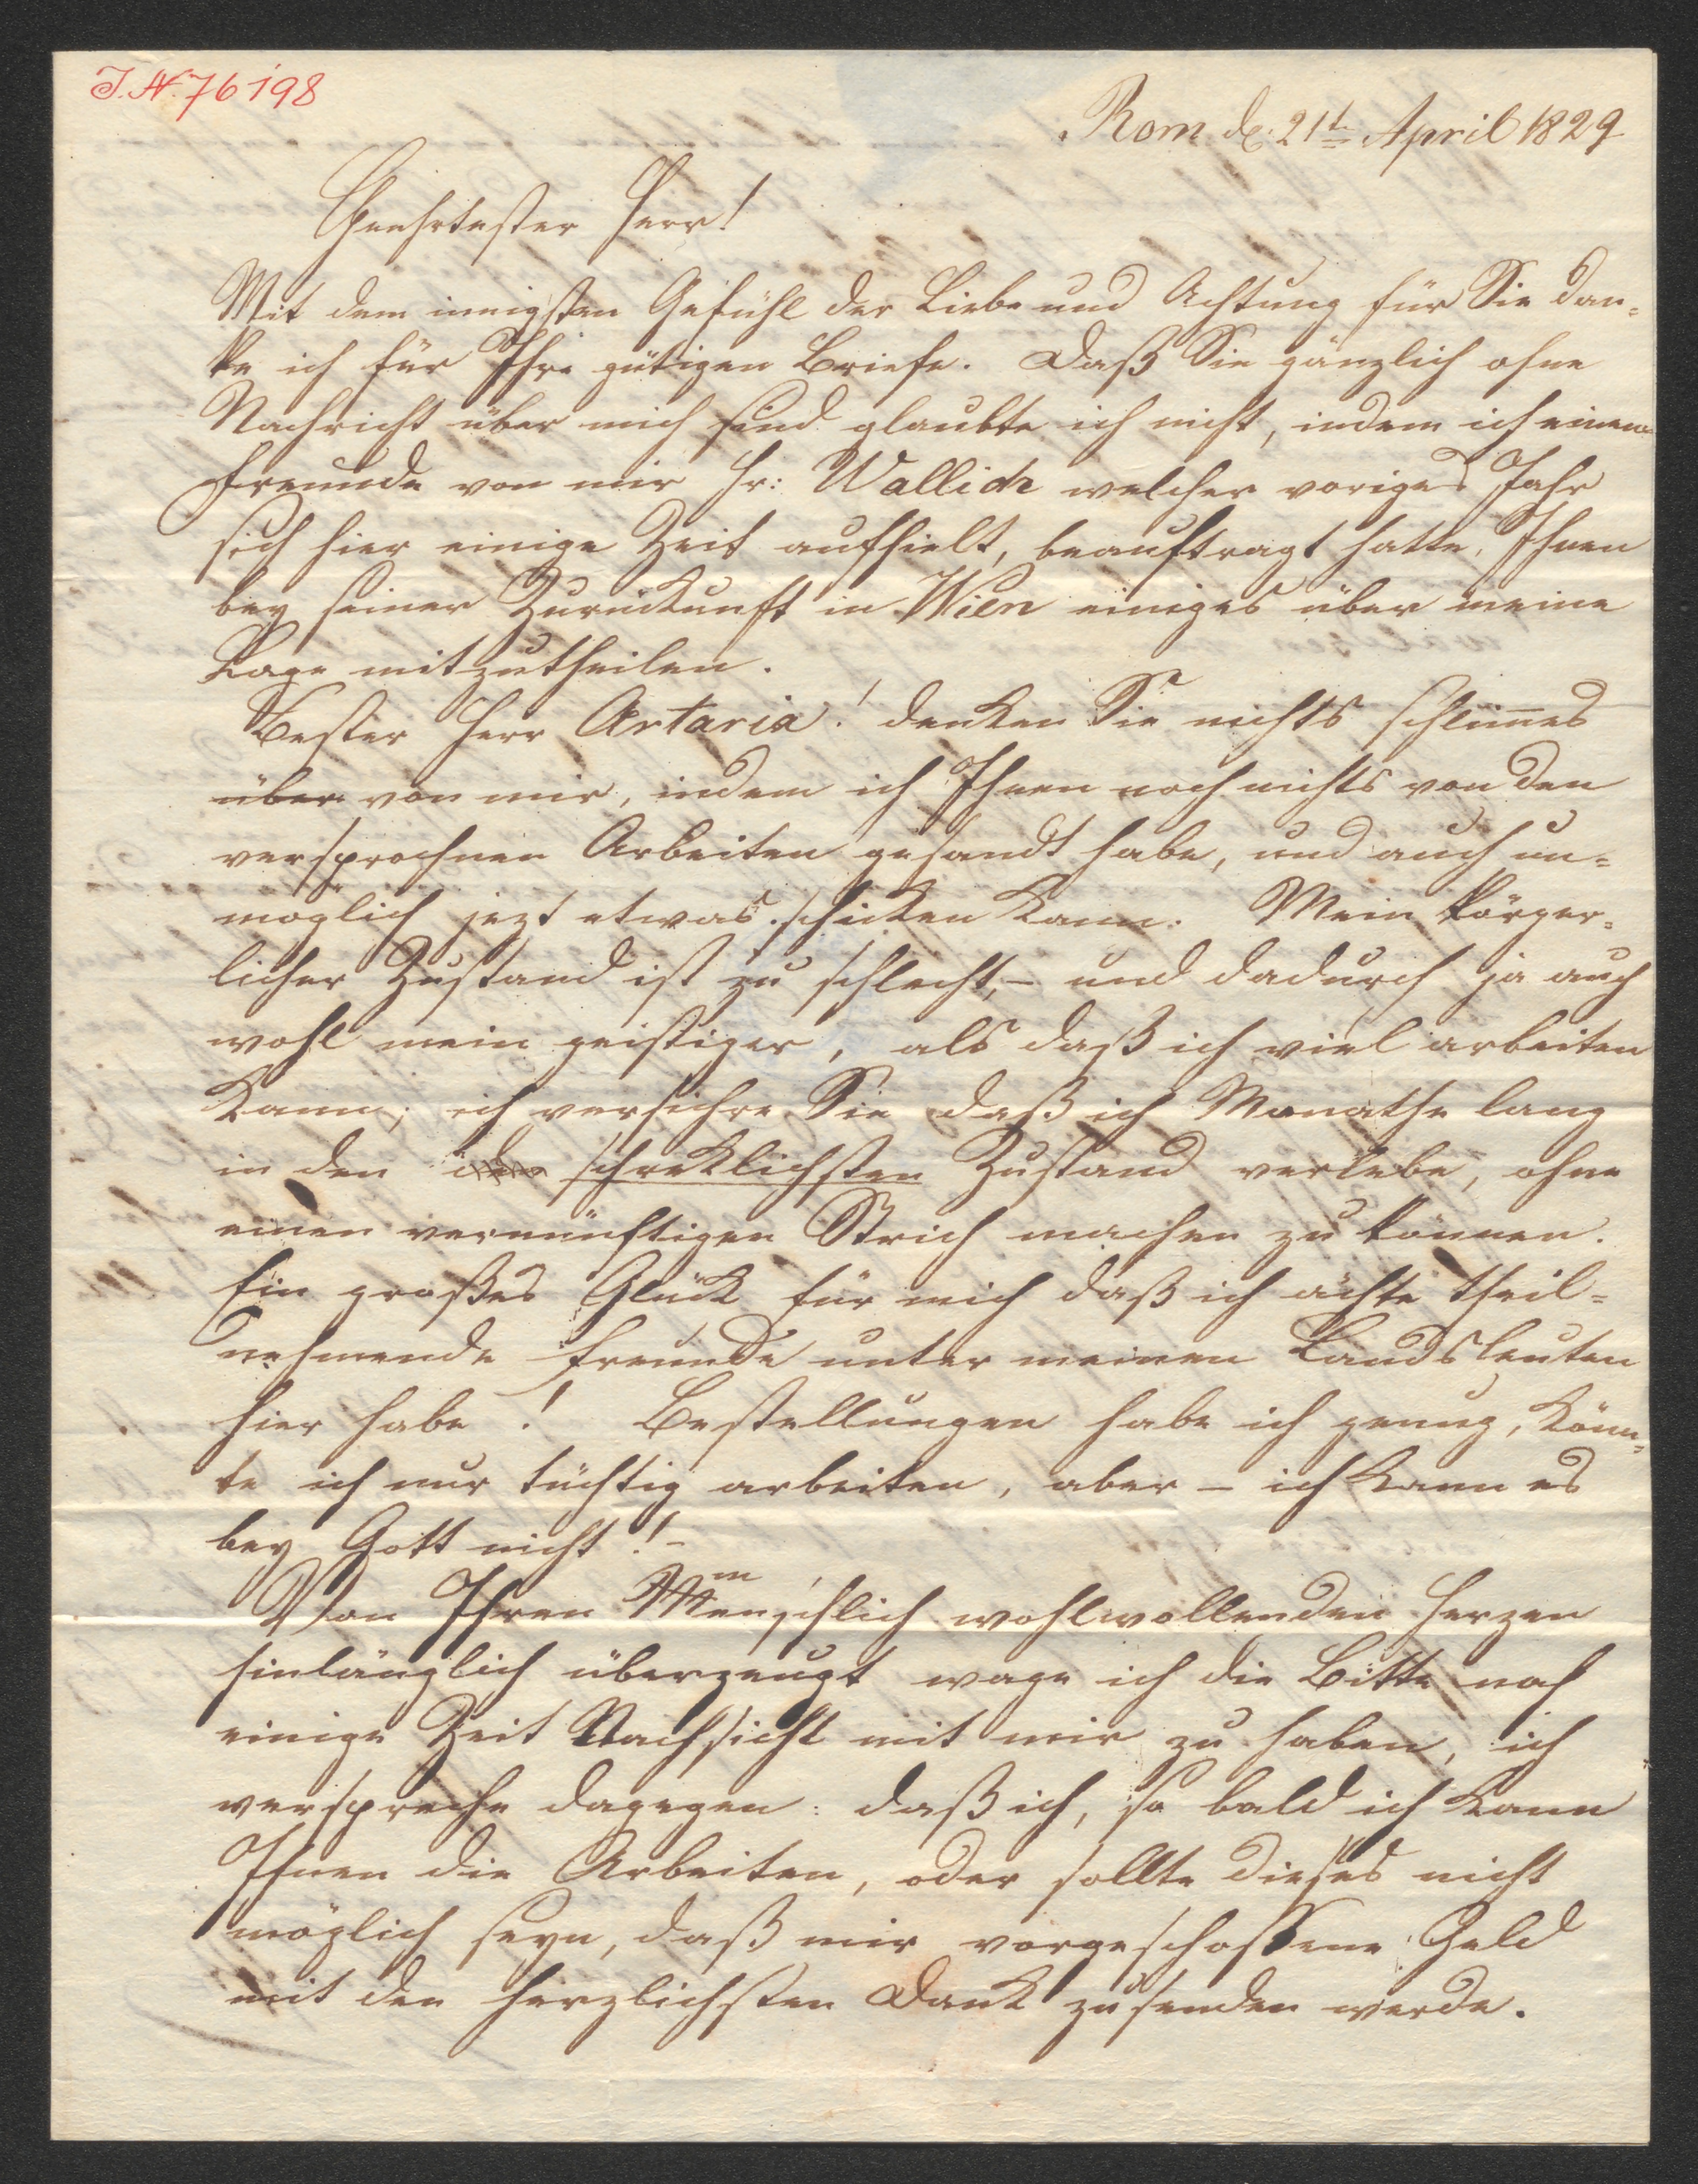 J.N. 76198
Rom d. 21t April 1829
Geehrtester Herr!
Mit dem innigsten Gefühl der Liebe und Achtung für Sie dan=
ke ich für Ihre gütigen Briefe. Daß Sie gänzlich ohne
Nachricht über mich sind glaubte ich nicht, indem ich einem
Freunde von mir Hr: Wallich welcher voriges Jahr
sich hier einige Zeit aufhielt, beauftragt hatte, Ihnen
bey seiner Zurückunft in Wien einiges über meine
Lage mitzutheilen.
Bester Herr Artaria! denken Sie nichts schlimes
über von mir, indem ich Ihnen noch nichts von den
versprochnen Arbeiten gesandt habe, und auch un=
möglich jezt etwas schicken kann. Mein körper=
licher Zustand ist zu schlecht, – und dadurch ja auch
wohl mein geistiger, als daß ich viel arbeiten
kann; ich versichre Sie daß ich Monathe lang
in den schreklichsten Zustand verlebe, ohne
einen vernünftigen Strich machen zu können.
Ein großes Glück für mich daß ich ächte theil=
nehmende Freunde unter meinen Landsleuten
hier habe! Bestellungen habe ich genug, könn=
te ich nur tüchtig arbeiten, aber – ich kann es
bey Gott nicht! –
Von Ihren menschlich wohlwollenden Herzen
hinlänglich überzeugt wage ich die Bitte noch
einige Zeit Nachsicht mit mir zu haben, ich
verspreche dagegen: daß ich, so bald ich kann
Ihnen die Arbeiten, oder sollte dieses nicht
möglich seyn, daß mir vorgeschossene Geld
mit den herzlichsten Dank zusenden werde.